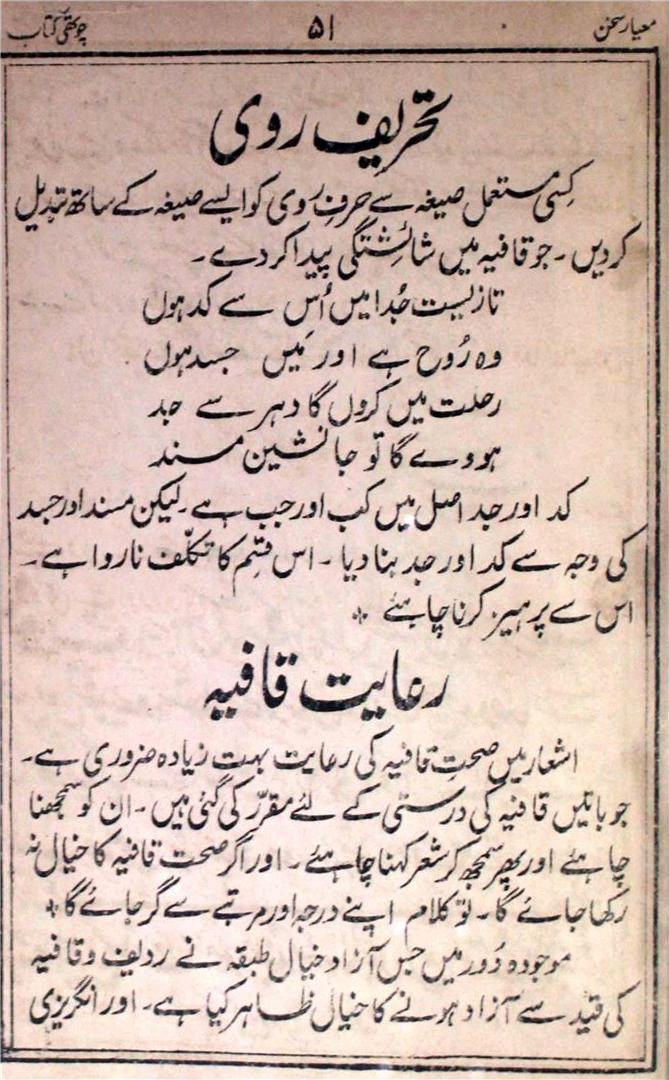 معیار سخن ۵۱ چوتھی کتاب
تحریف روی
کسی مستعمل صیغہ سے حرفِ روی کو ایسے صیغہ کے ساتھ تبدیل
کردیں۔ جو قافیہ میں شائستگی پیدا کردے۔
تازیست جُدا میں اُس سے کد ہوں
وہ رُوح ہے اور مَیں جسد ہوں
رحلت میں کروں گا دہر سے جد
ہووے گا تو جانشین مسند
کد اور جد اصل میں کب اور جب ہے۔ لیکن مسند اور جسد
کی وجہ سے کد اور جد بنا دیا۔ اس قسم کا تکلّف ناروا ہے۔
اس سے پرہیز کرنا چاہئے ٭
رعایت قافیہ
اشعار میں صحتِ قافیہ کی رعایت بہت زیادہ ضروری ہے۔
جو باتیں قافیہ کی درستی کے لئے مقرّر کی گئی ہیں۔ ان کو سمجھنا
چاہئے اور پھر سمجھ کر شعر کہنا چاہئے۔ اور اگر صحت قافیہ کا خیال نہ
رکھا جائے گا۔ تو کلام اپنے درجہ اور مرتبے سے گر جائے گا ٭
موجودہ دَور میں جس آزاد خیال طبقہ نے ردیف و قافیہ
کی قید سے آزاد ہونے کا خیال ظاہر کیا ہے۔ اور انگریزی